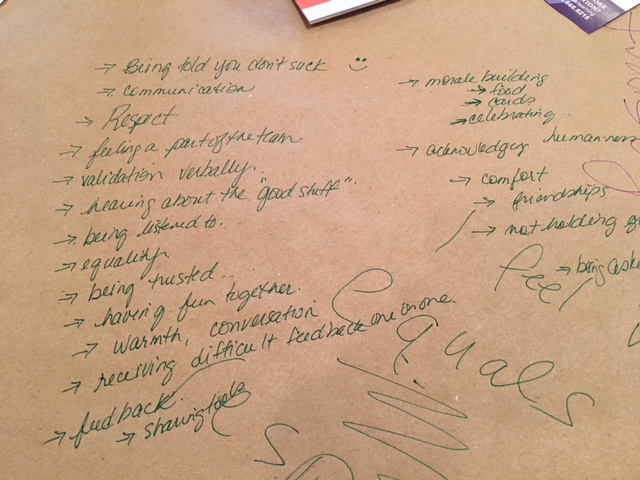 → Being told you don't suck :)
→ communication
→ Respect
→ feeling a part of the team
→ validation verbally.
→ hearing about the "good stuff".
→ being listened to.
→ equality
→ being trusted
→ having fun together.
→ warmth, conversation
→ receiving difficult feedback one on one.
→ feedback.
→ sharing tools
→ morale building
→ food
→ cards
→ celebrating
→ acknowledging humanness
→ comfort
→ friendships
→ not holding
→ being
feel
Equals